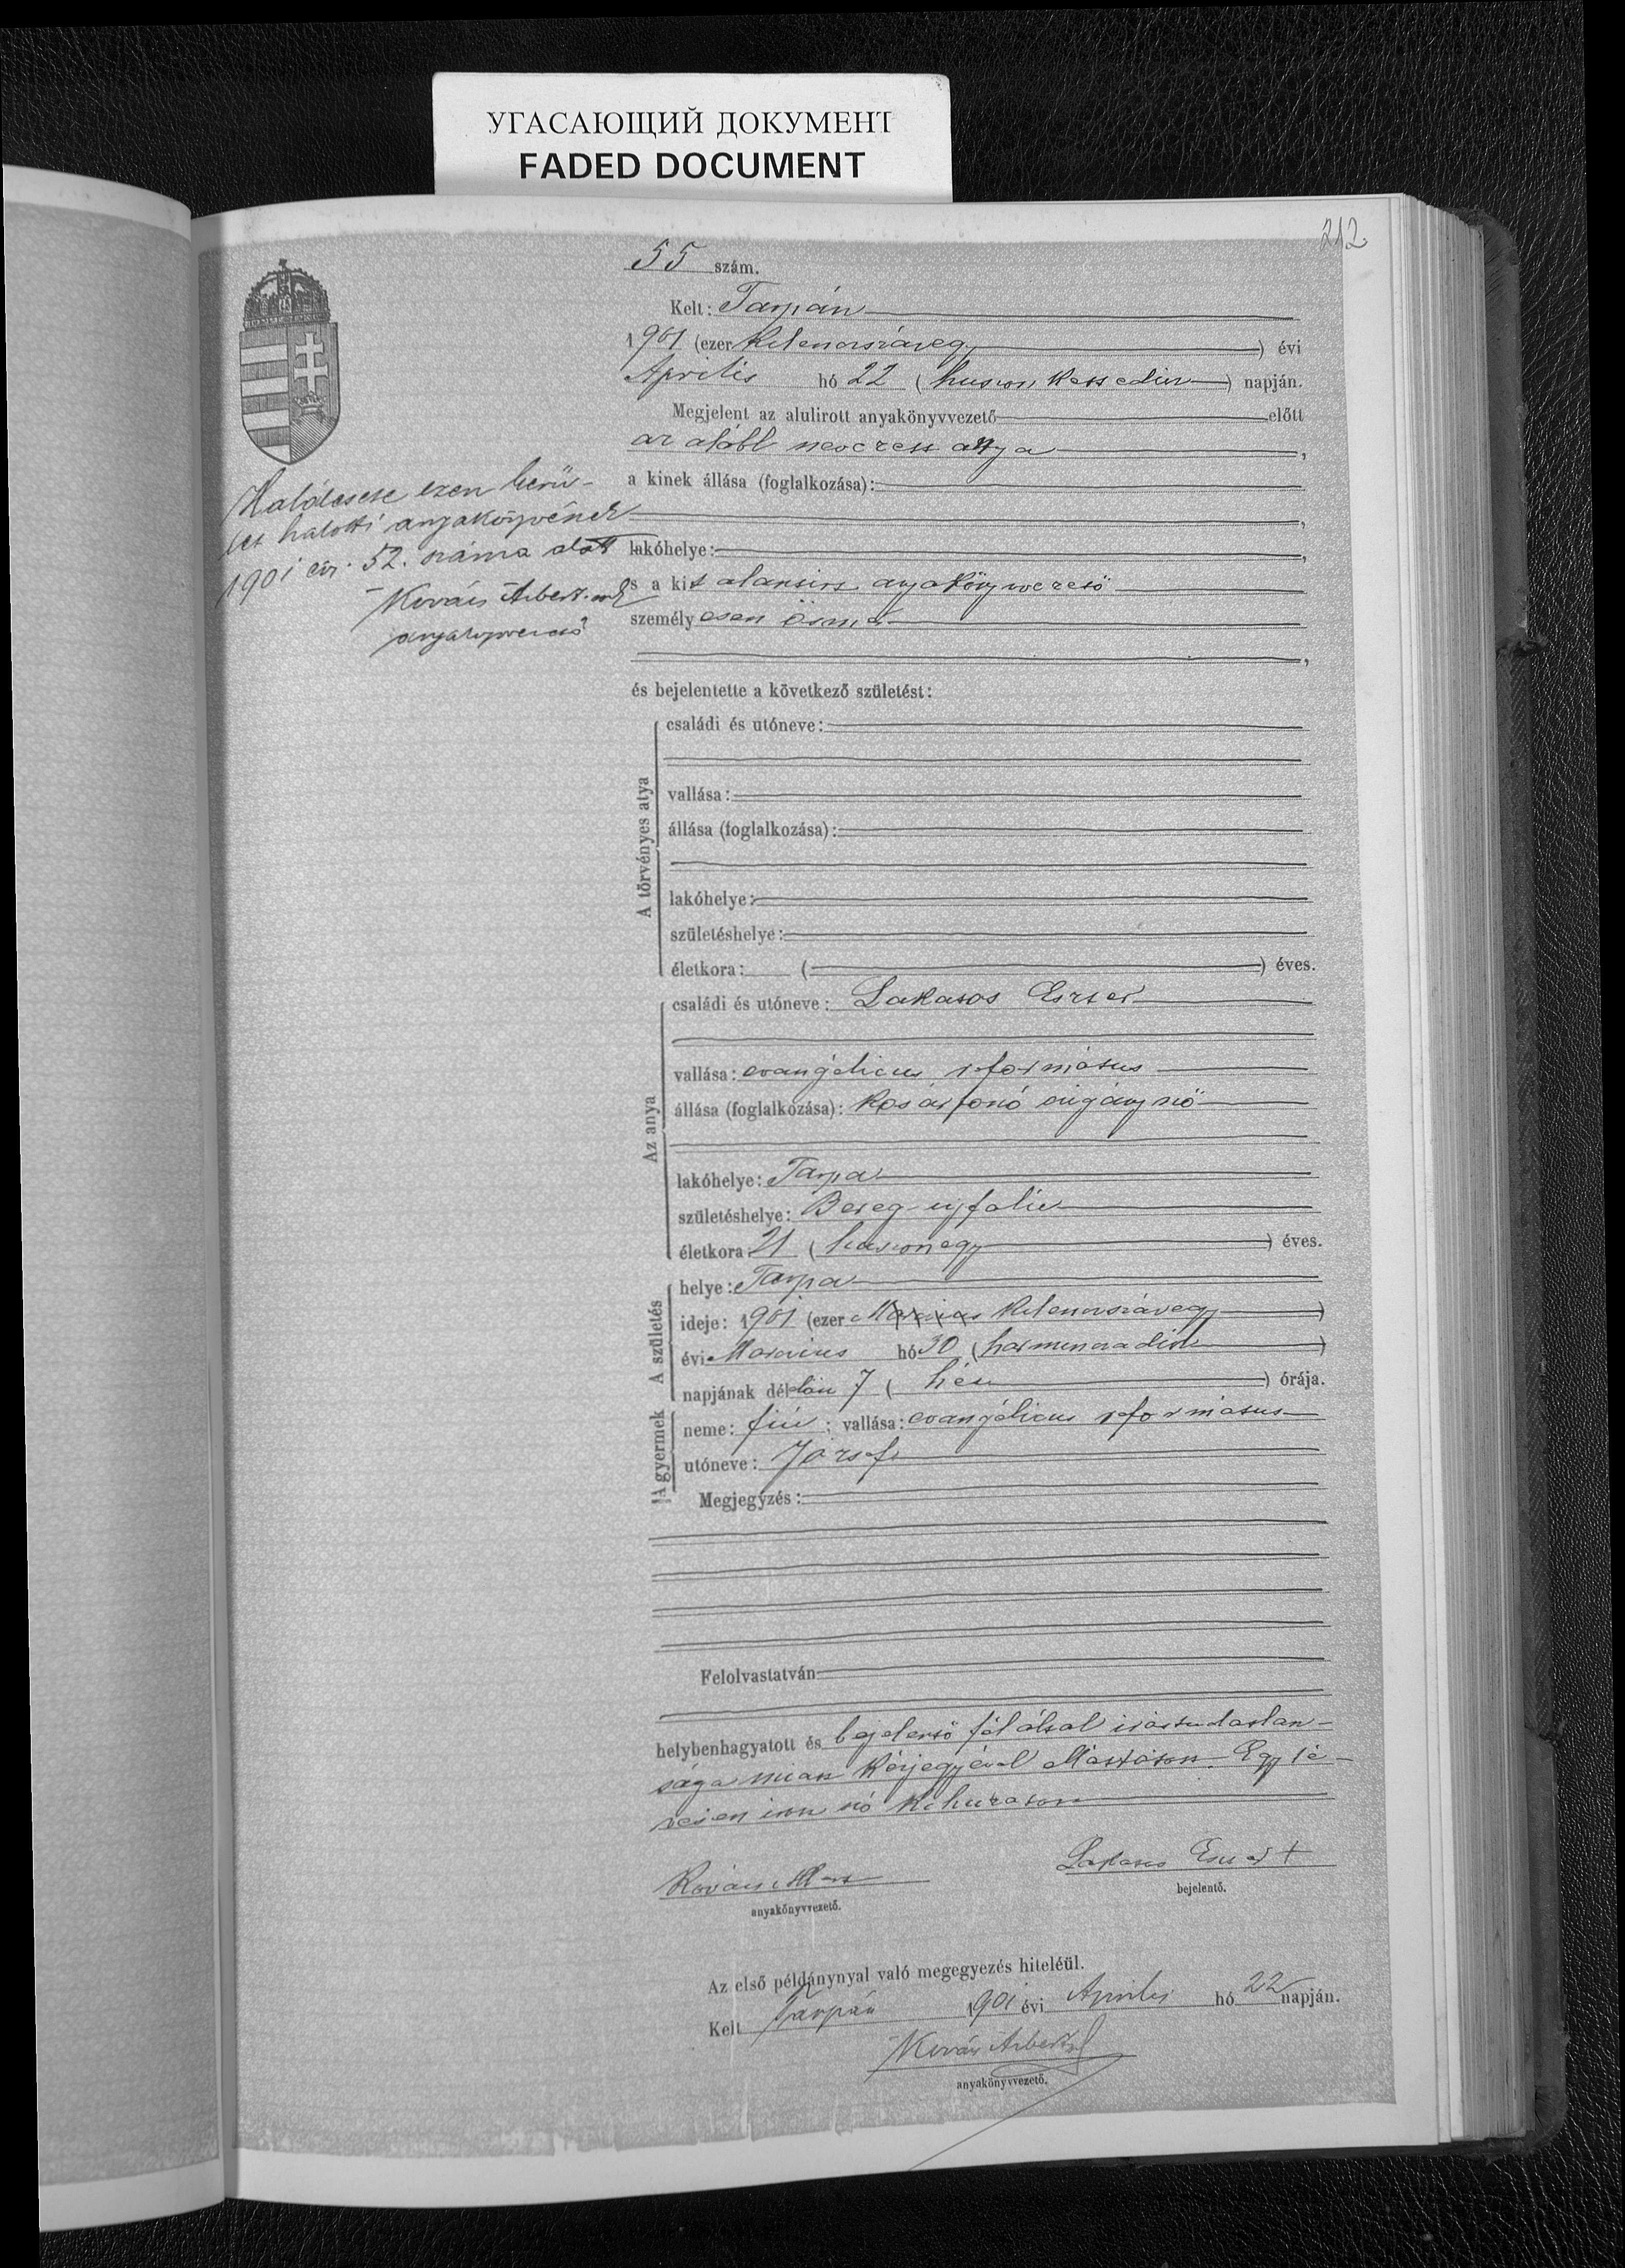 УГАСАЮЩИЙ ДОКУМЕНТ
FADED DOCUMENT
212
55 szám.
Kelt: Tarpán
1901 (ezer kilenczszázegy) évi
Április hó 22 (huszonkettedik) napján.
Megjelent az alulirott anyakönyvvezető előtt
az alább nevezett anya,
a kinek állása (foglalkozása):
lakóhelye:
s a kit alantirt anyakönyvvezető
személyesen ösmer
és bejelentette a következő születést:
Halálesete ezen kerü-
let halotti anyakönyvének
1901 évi 52. száma alatt
Kovács Albert
anyakönyvvezető
A törvényes atya
családi és utóneve:
vallása:
állása (foglalkozása):
lakóhelye:
születéshelye:
életkora: ( ) éves.
Az anya
családi és utóneve: Lakatos Eszter
vallása: evangélicus református
állása (foglalkozása): kosárfonó czigánynő
lakóhelye: Tarpa
születéshelye: Bereg-ujfalu
életkora 21 (huszonegy) éves.
A születés
helye: Tarpa
ideje: 1901 (ezer Márczius kilenczszázegy)
évi Márczius hó 30 (harminczadik)
napjának dél 7 (hét) órája.
A gyermek
neme: fiú; vallása: evangélicus református
utóneve: József
Megjegyzés:
Felolvastatván
helybenhagyatott és bejelentő fél által irástudatlan-
sága miatt kézjegyével elláttatott. Egy té-
vesen irt szó kihuzatott
Kovács Albert
anyakönyvvezető.
Lakatos Eszter +
bejelentő.
Az első példánynyal való megegyezés hiteléül.
Kelt Tarpán 1901 évi Április hó 22 napján.
Kovács Albert
anyakönyvvezető.